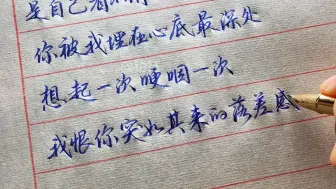 是自己看
你被我埋在心底最深处
想起一次哽咽一次
我恨你突如其来的落差感